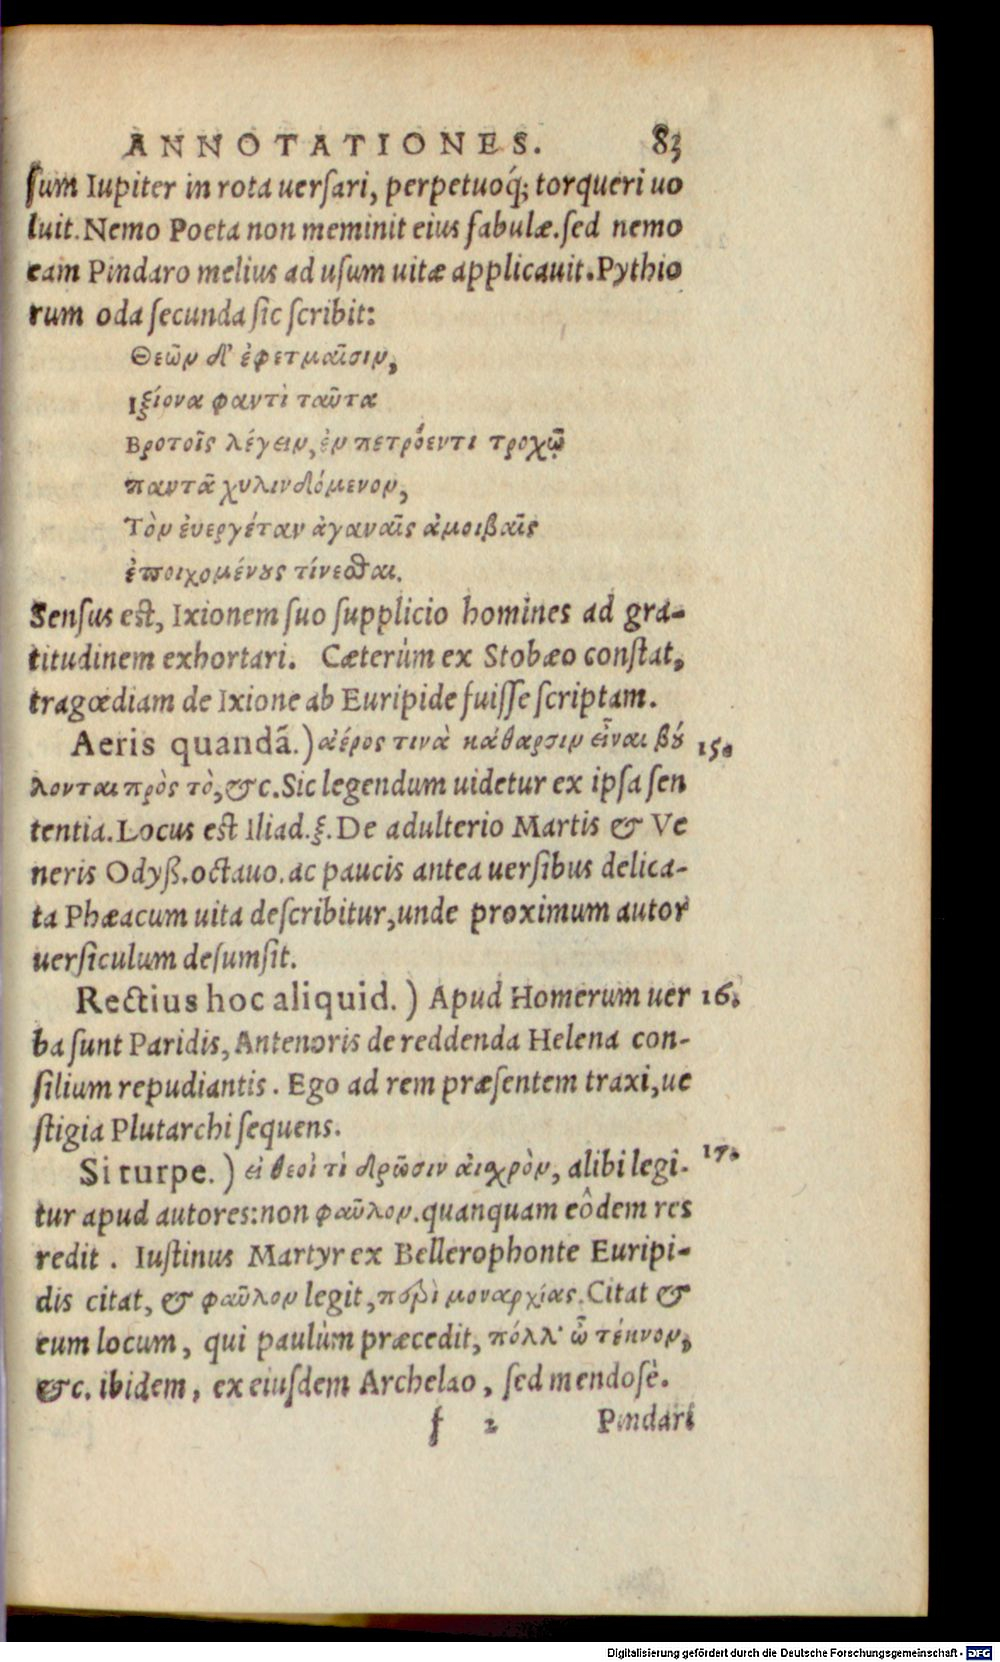 ANNOTATIONES. 83
sum Iupiter in rota uersari, perpetuoq́; torqueri uo
luit. Nemo Poeta non meminit eius fabulæ. sed nemo
eam Pindaro melius ad usum uitæ applicauit. Pythio
rum oda secunda sic scribit:
Θεῶν δ' ἐφετμαῖσιν,
Ιξίονα φαντὶ ταῦτα
Βροτοῖς λέγειν, ἐν πετρόεντι τροχῷ
παντᾶ χυλινδόμενον,
Τὸν ἐυεργέταν ἀγαναῖς ἀμοιβαῖς
ἐποιχομένους τίνεσθαι.
Sensus est, Ixionem suo supplicio homines ad gra-
titudinem exhortari. Cæterùm ex Stobæo constat,
tragœdiam de Ixione ab Euripide fuisse scriptam.
Aeris quandã.) ἀέρος τινὰ κάθαρσιν εἶναι βού 15.
λονται πρὸς τὸ, &c. Sic legendum uidetur ex ipsa sen
tentia. Locus est Iliad. ξ. De adulterio Martis & Ve
neris Odyß. octauo. ac paucis antea uersibus delica-
ta Phæacum uita describitur, unde proximum autor
uersiculum desumsit.
Rectius hoc aliquid.) Apud Homerum uer 16.
ba sunt Paridis, Antenoris de reddenda Helena con-
silium repudiantis. Ego ad rem præsentem traxi, ue
stigia Plutarchi sequens.
Si turpe.) εἰ θεοὶ τὶ δρῶσιν ἀισχρὸν, alibi legi- 17.
tur apud autores: non φαῦλον. quanquam eôdem res
redit. Iustinus Martyr ex Bellerophonte Euripi-
dis citat, & φαῦλον legit, περὶ μοναρχίας. Citat &
eum locum, qui paulùm præcedit, πόλλ' ὦ τέκνον,
&c. ibidem, ex eiusdem Archelao, sed mendosè.
f 2 Pindari
Digitalisierung gefördert durch die Deutsche Forschungsgemeinschaft - DFG